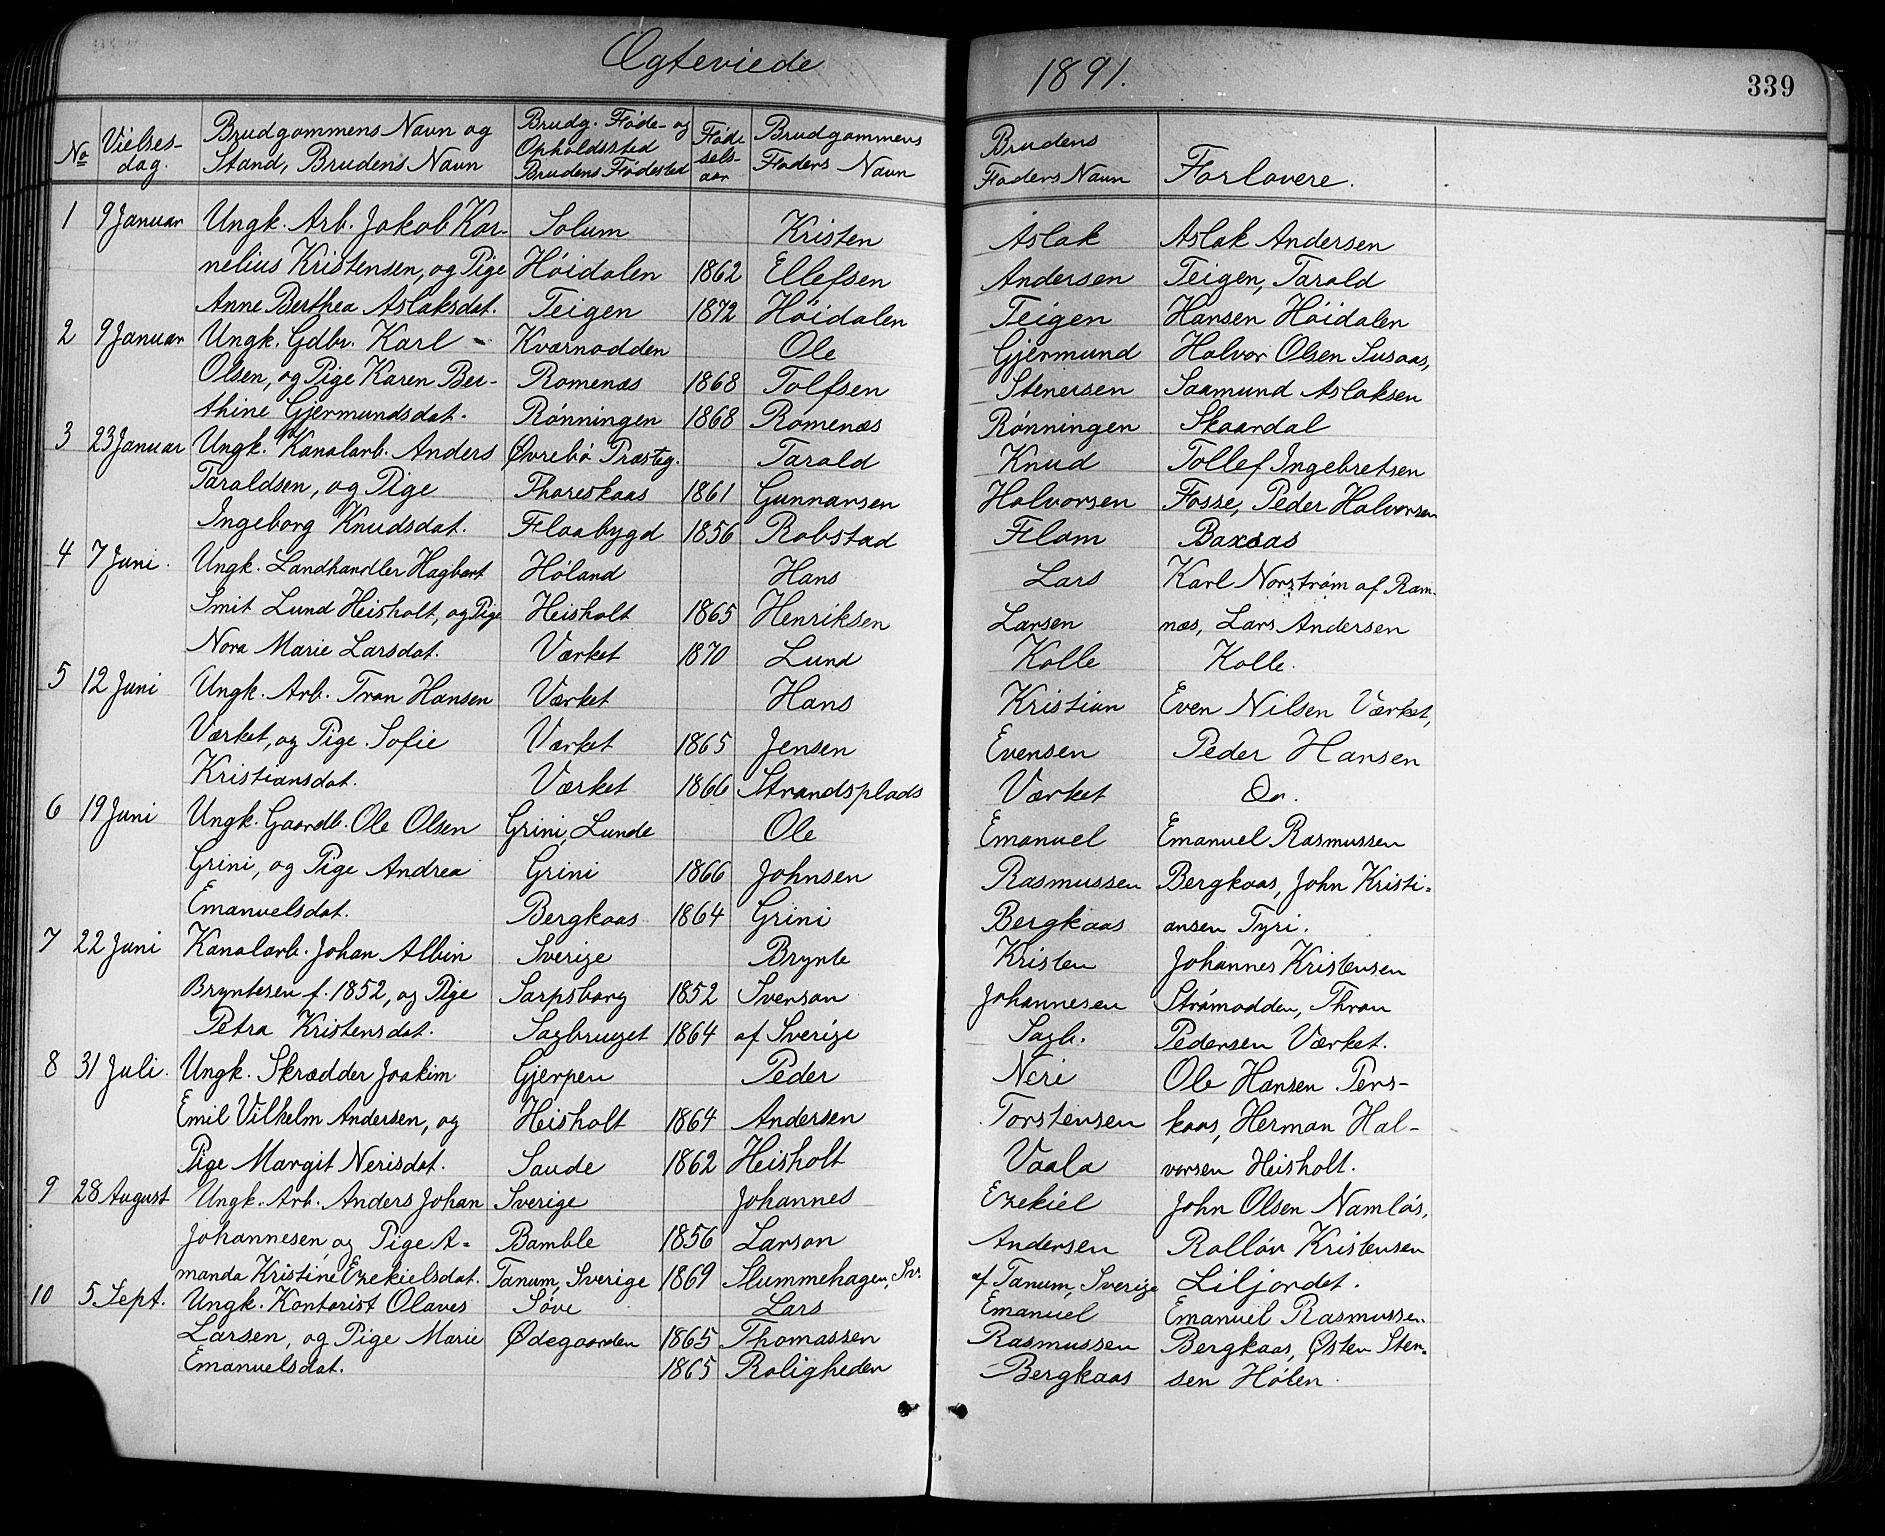 Ægteviede 1891. 339
No Vielses-dag. Brudgommens Navn og Stand, Brudens Navn Brudg. Føde- og Opholdssted Brudens Fødested Fødselsaar Brudgommens Faders Navn Brudens Faders Navn Forlovere.
1 9 Januar Ungk. Arb. Jakob Kor- Solum Kristen Aslak Aslak Andersen
nelius Kristensen, og Pige Höidalen 1862 Ellefsen Andersen Teigen, Tarald
Anne Berthea Aslaksdat. Teigen 1872 Höidalen Teigen Hansen Höidalen
2 9 Januar Ungk. Gdbr. Karl Kvarnodden Ole Gjermund Halvor Olsen Susaas,
Olsen, og Pige Karen Ber- Romenæs 1868 Tolfsen Stenersen Saamund Aslaksen
thine Gjermundsdat. Rönningen 1868 Romenæs Rönningen Skaardal
3 23 Januar Ungk. Kanalarb. Anders Øvrebö Præsteg. Tarald Knud Tollef Ingebretsen
Taraldsen, og Pige Thoreskaas 1861 Gunnarsen Halvorsen Fosse, Peder Halvorsen
Ingeborg Knudsdat. Flaabygd 1856 Robstad Flom Baxaas
4 7 Juni. Ungk. Landhandler Hagbart Höland Hans Lars Karl Norström af Ram-
Smit Lund Heisholt, og Pige Heisholt 1865 Henriksen Larsen næs, Lars Andersen
Nora Marie Larsdat. Værket 1870 Lund Kolle Kolle.
5 12 Juni Ungk. Arb. Tron Hansen Værket Hans Kristian Even Nilsen Værket,
Værket, og Pige Sofie Værket 1865 Jensen Evensen Peder Hansen
Kristiansdat. Værket 1866 Strandsplads Værket Do.
6 19 Juni Ungk. Gaardb. Ole Olsen Grini, Lunde Ole Emanuel Emanuel Rasmussen
Grini, og Pige Andrea Grini 1866 Johnsen Rasmussen Bergkaas, John Kristi=
Emanuelsdat. Bergkaas 1864 Grini Bergkaas ansen Tyri.
7 22 Juni Kanalarb. Johan Albin Sverige Brynte Kristen Johannes Kristensen
Bryntesen f. 1852, og Pige Sarpsborg 1852 Svenson Johannesen Strömodden, Thron
Petra Kristensdat. Sagbruget 1864 af Sverige Sagb. Pedersen Værket.
8 31 Juli. Ungk. Skrædder Joakim Gjerpen Peder Neri Ole Hansen Pers-
Emil Vilhelm Andersen, og Heisholt 1864 Andersen Torstensen kaas, Herman Hal-
Pige Margit Nerisdat. Saude 1862 Heisholt Vaala vorsen Heisholt.
9 28 August Ungk. Arb. Anders Johan Sverige Johannes Ezekiel John Olsen Namlös,
Johannesen og Pige A= Bamble 1856 Larson Andersen Rollöv Kristensen
manda Kristine Ezekielsdat. Tanum, Sverige 1869 Slummehagen, Sv. af Tanum, Sverige Liljordet.
10 5 Sept. Ungk. Kontorist Olaves Söve Lars Emanuel Emanuel Rasmussen
Larsen, og Pige Marie Ødegaarden 1865 Thomassen Rasmussen Bergkaas, Østen Sten=
Emanuelsdat. 1865 Roligheden Bergkaas sen Hölen.